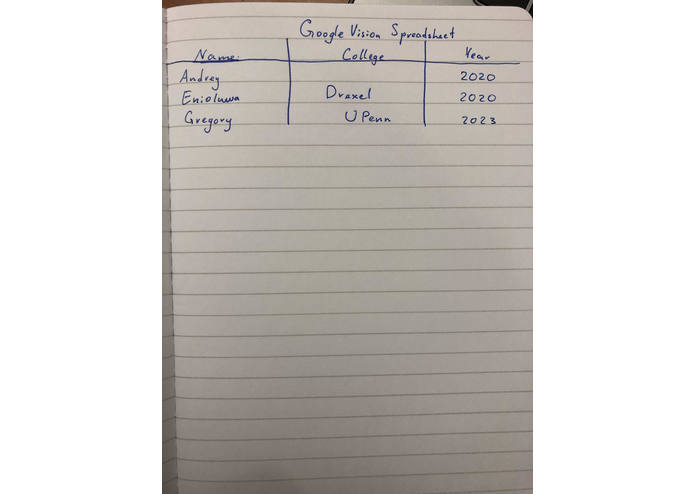 Google Vision Spreadsheet
Name: College Year
Andrey 2020
Enioluwa Drexel 2020
Gregory U Penn 2023